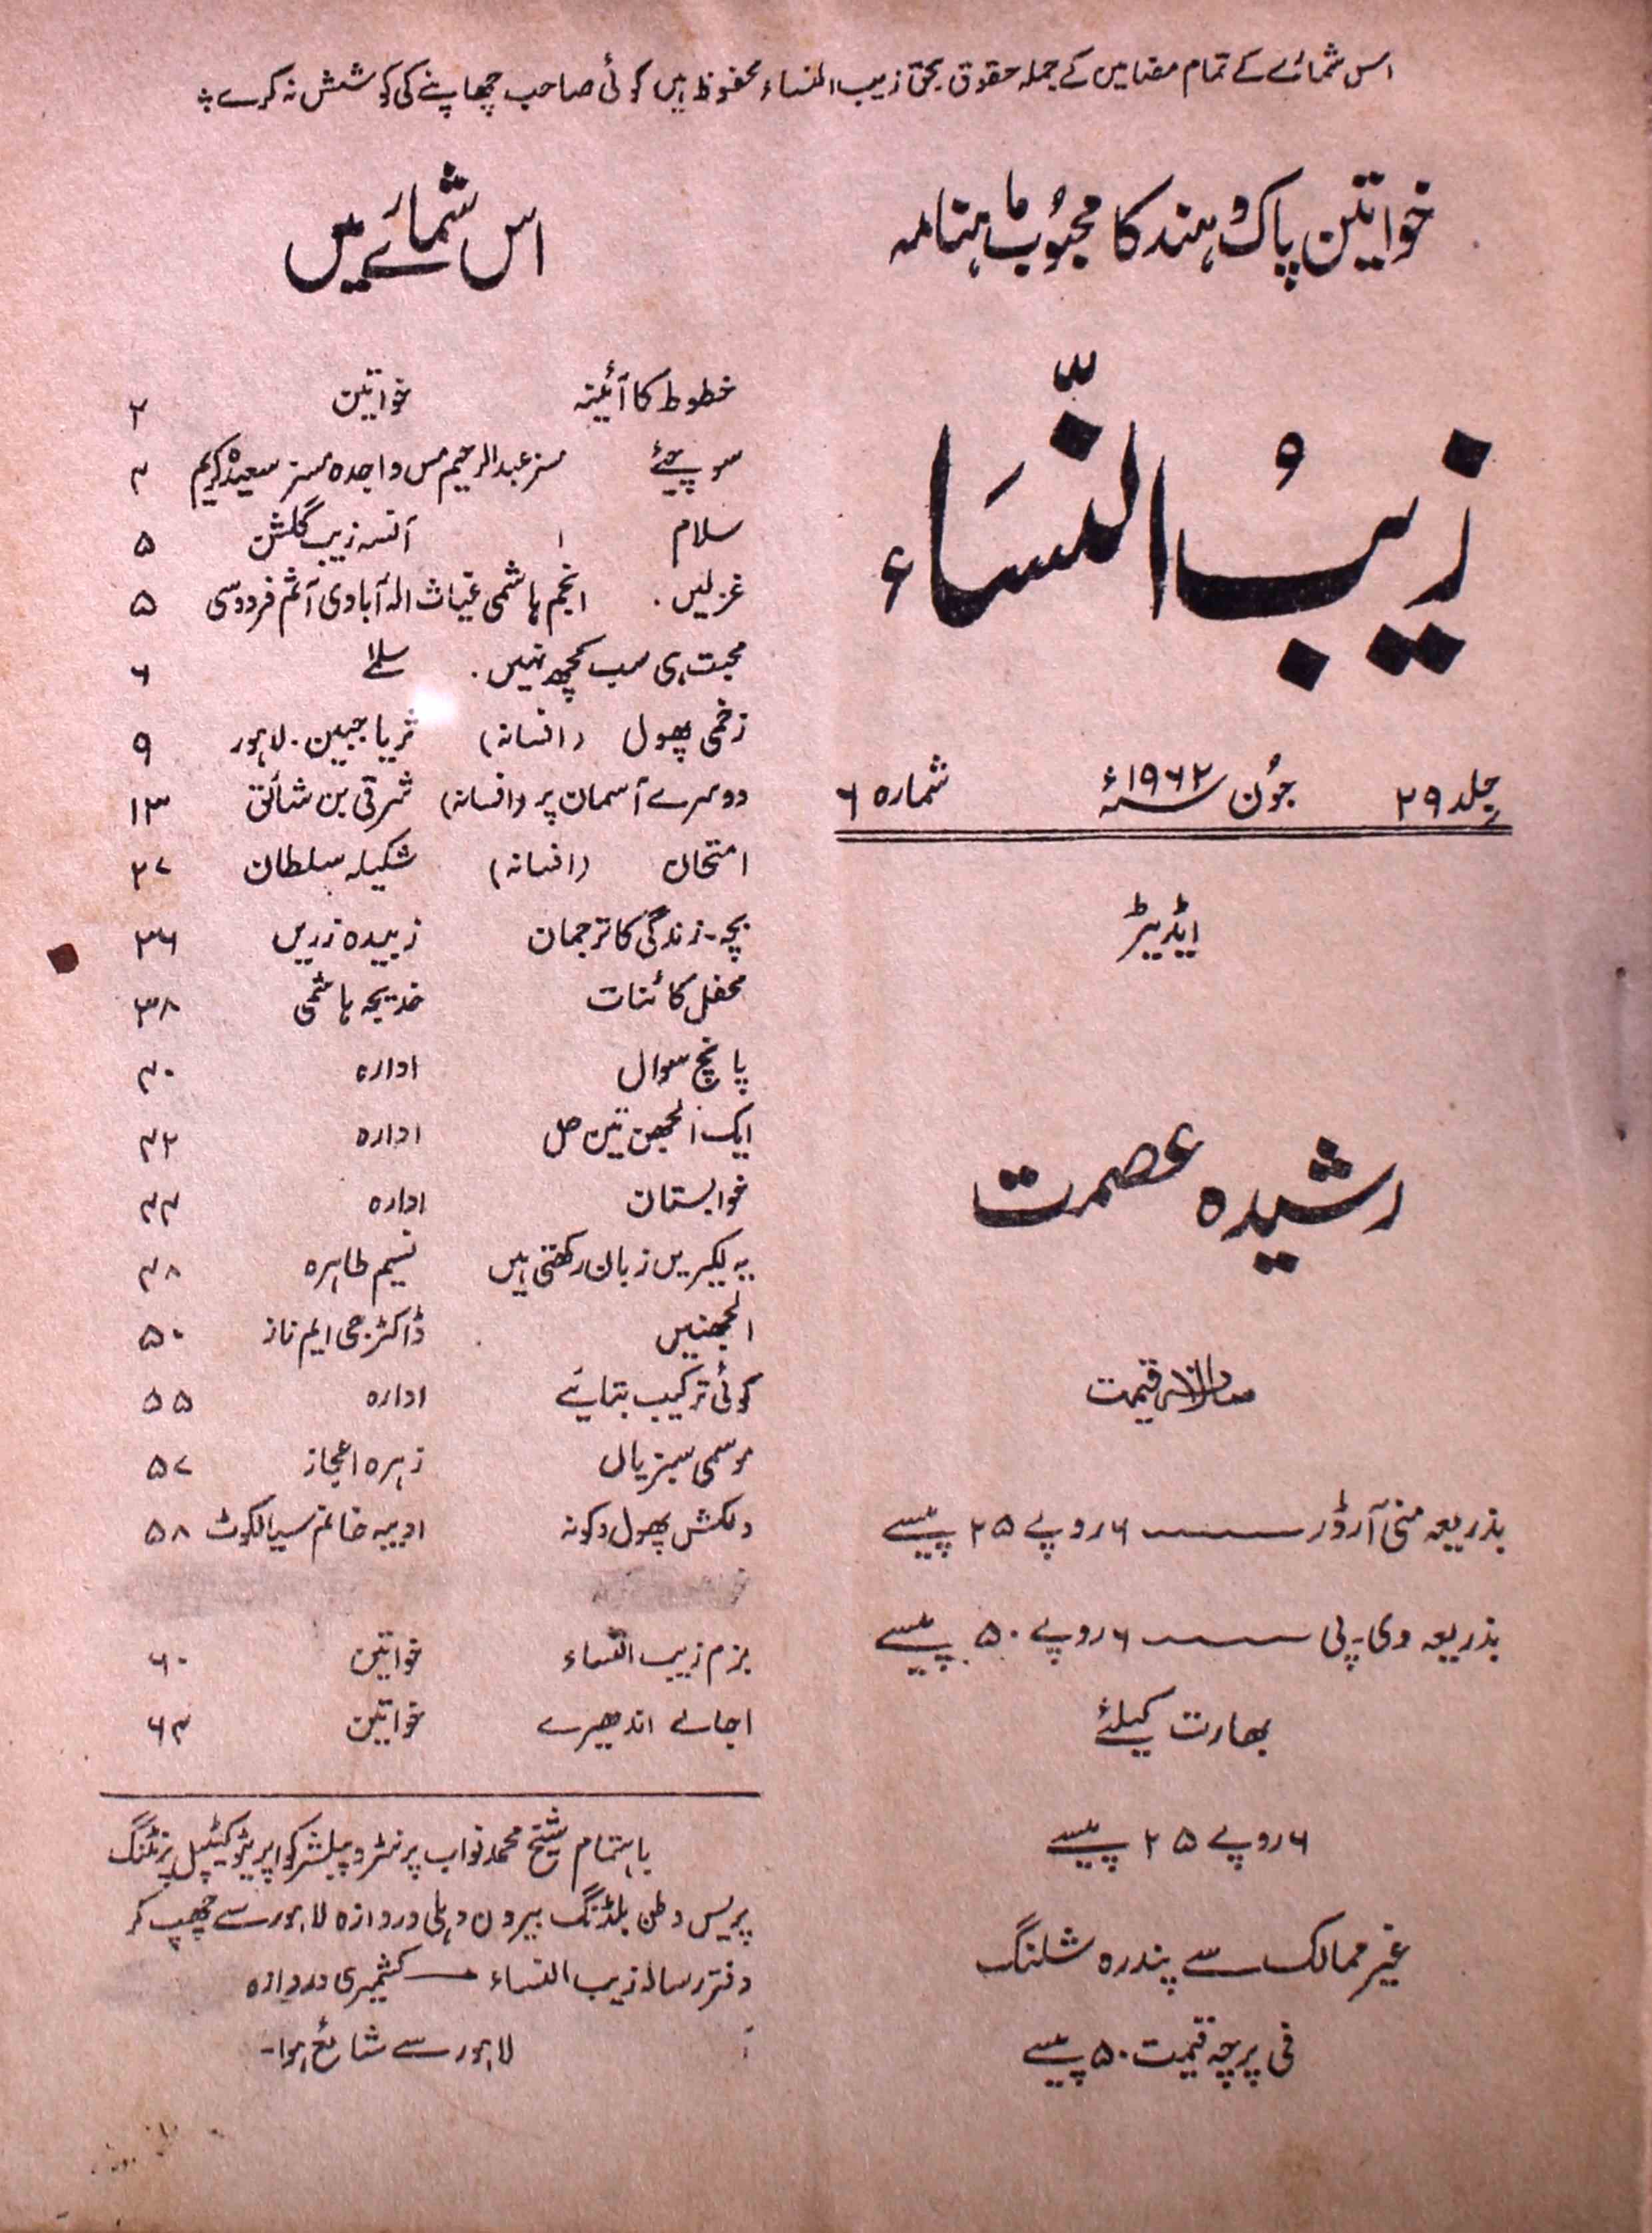 اس شمارے کے تمام مضامین کے جملہ حقوق بحق زیب النساء محفوظ ہیں کوئی صاحب چھاپنے کی کوشش نہ کرے
خواتین پاک و ہند کا محبُوب ماہنامہ
زیبُ النّساء
جلد ۲۹ جُون ۱۹۶۲ء شمارہ ۶
ایڈیٹر
رشیدہ عصمت
سالانہ قیمت
بذریعہ منی آرڈر ۶ روپے ۲۵ پیسے
بذریعہ وی۔پی ۶ روپے ۵۰ پیسے
بھارت کیلئے
۶ روپے ۲۵ پیسے
غیر ممالک سے پندرہ شلنگ
فی پرچہ قیمت ۵۰ پیسے
اس شمارے میں
خطوط کا آئینہ خواتین ۲
سوچیئے مسز عبدالرحیم مس واجدہ مسز سعیدہ کریم ۴
سلام آنسہ زیب گلشن ۵
غزلیں انجم ہاشمی غیاث الہ آبادی آثم فردوسی ۵
محبت ہی سب کچھ نہیں سلمٰے ۶
زخمی پھول (افسانہ) ثریا جبین۔ لاہور ۹
دوسرے آسمان پر (افسانہ) شرقی بن شائق ۱۳
امتحان (افسانہ) شکیلہ سلطان ۲۷
بچہ۔ زندگی کا ترجمان زبیدہ زریں ۳۶
محفل کائنات خدیجہ ہاشمی ۳۸
پانچ سوال ادارہ ۴۰
ایک الجھن تین حل ادارہ ۴۲
خوابستان ادارہ ۴۴
یہ لکیریں زبان رکھتی ہیں نسیم طاہرہ ۴۸
الجھنیں ڈاکٹر جی ایم ناز ۵۰
کوئی ترکیب بتایئے ادارہ ۵۵
موسمی سبزیاں زہرہ اعجاز ۵۷
دلکش پھول و کونہ ادیبہ خانم سیالکوٹ ۵۸
بزم زیب النساء خواتین ۶۰
اجالے اندھیرے خواتین ۶۴
باہتمام شیخ محمد نواب پرنٹر و پبلشر کواپریٹو کیپٹل پرنٹنگ
پریس وطن بلڈنگ بیرون دہلی دروازہ لاہور سے چھپ کر
دفتر رسالہ زیب النساء — کشمیری دروازہ
لاہور سے شائع ہوا۔